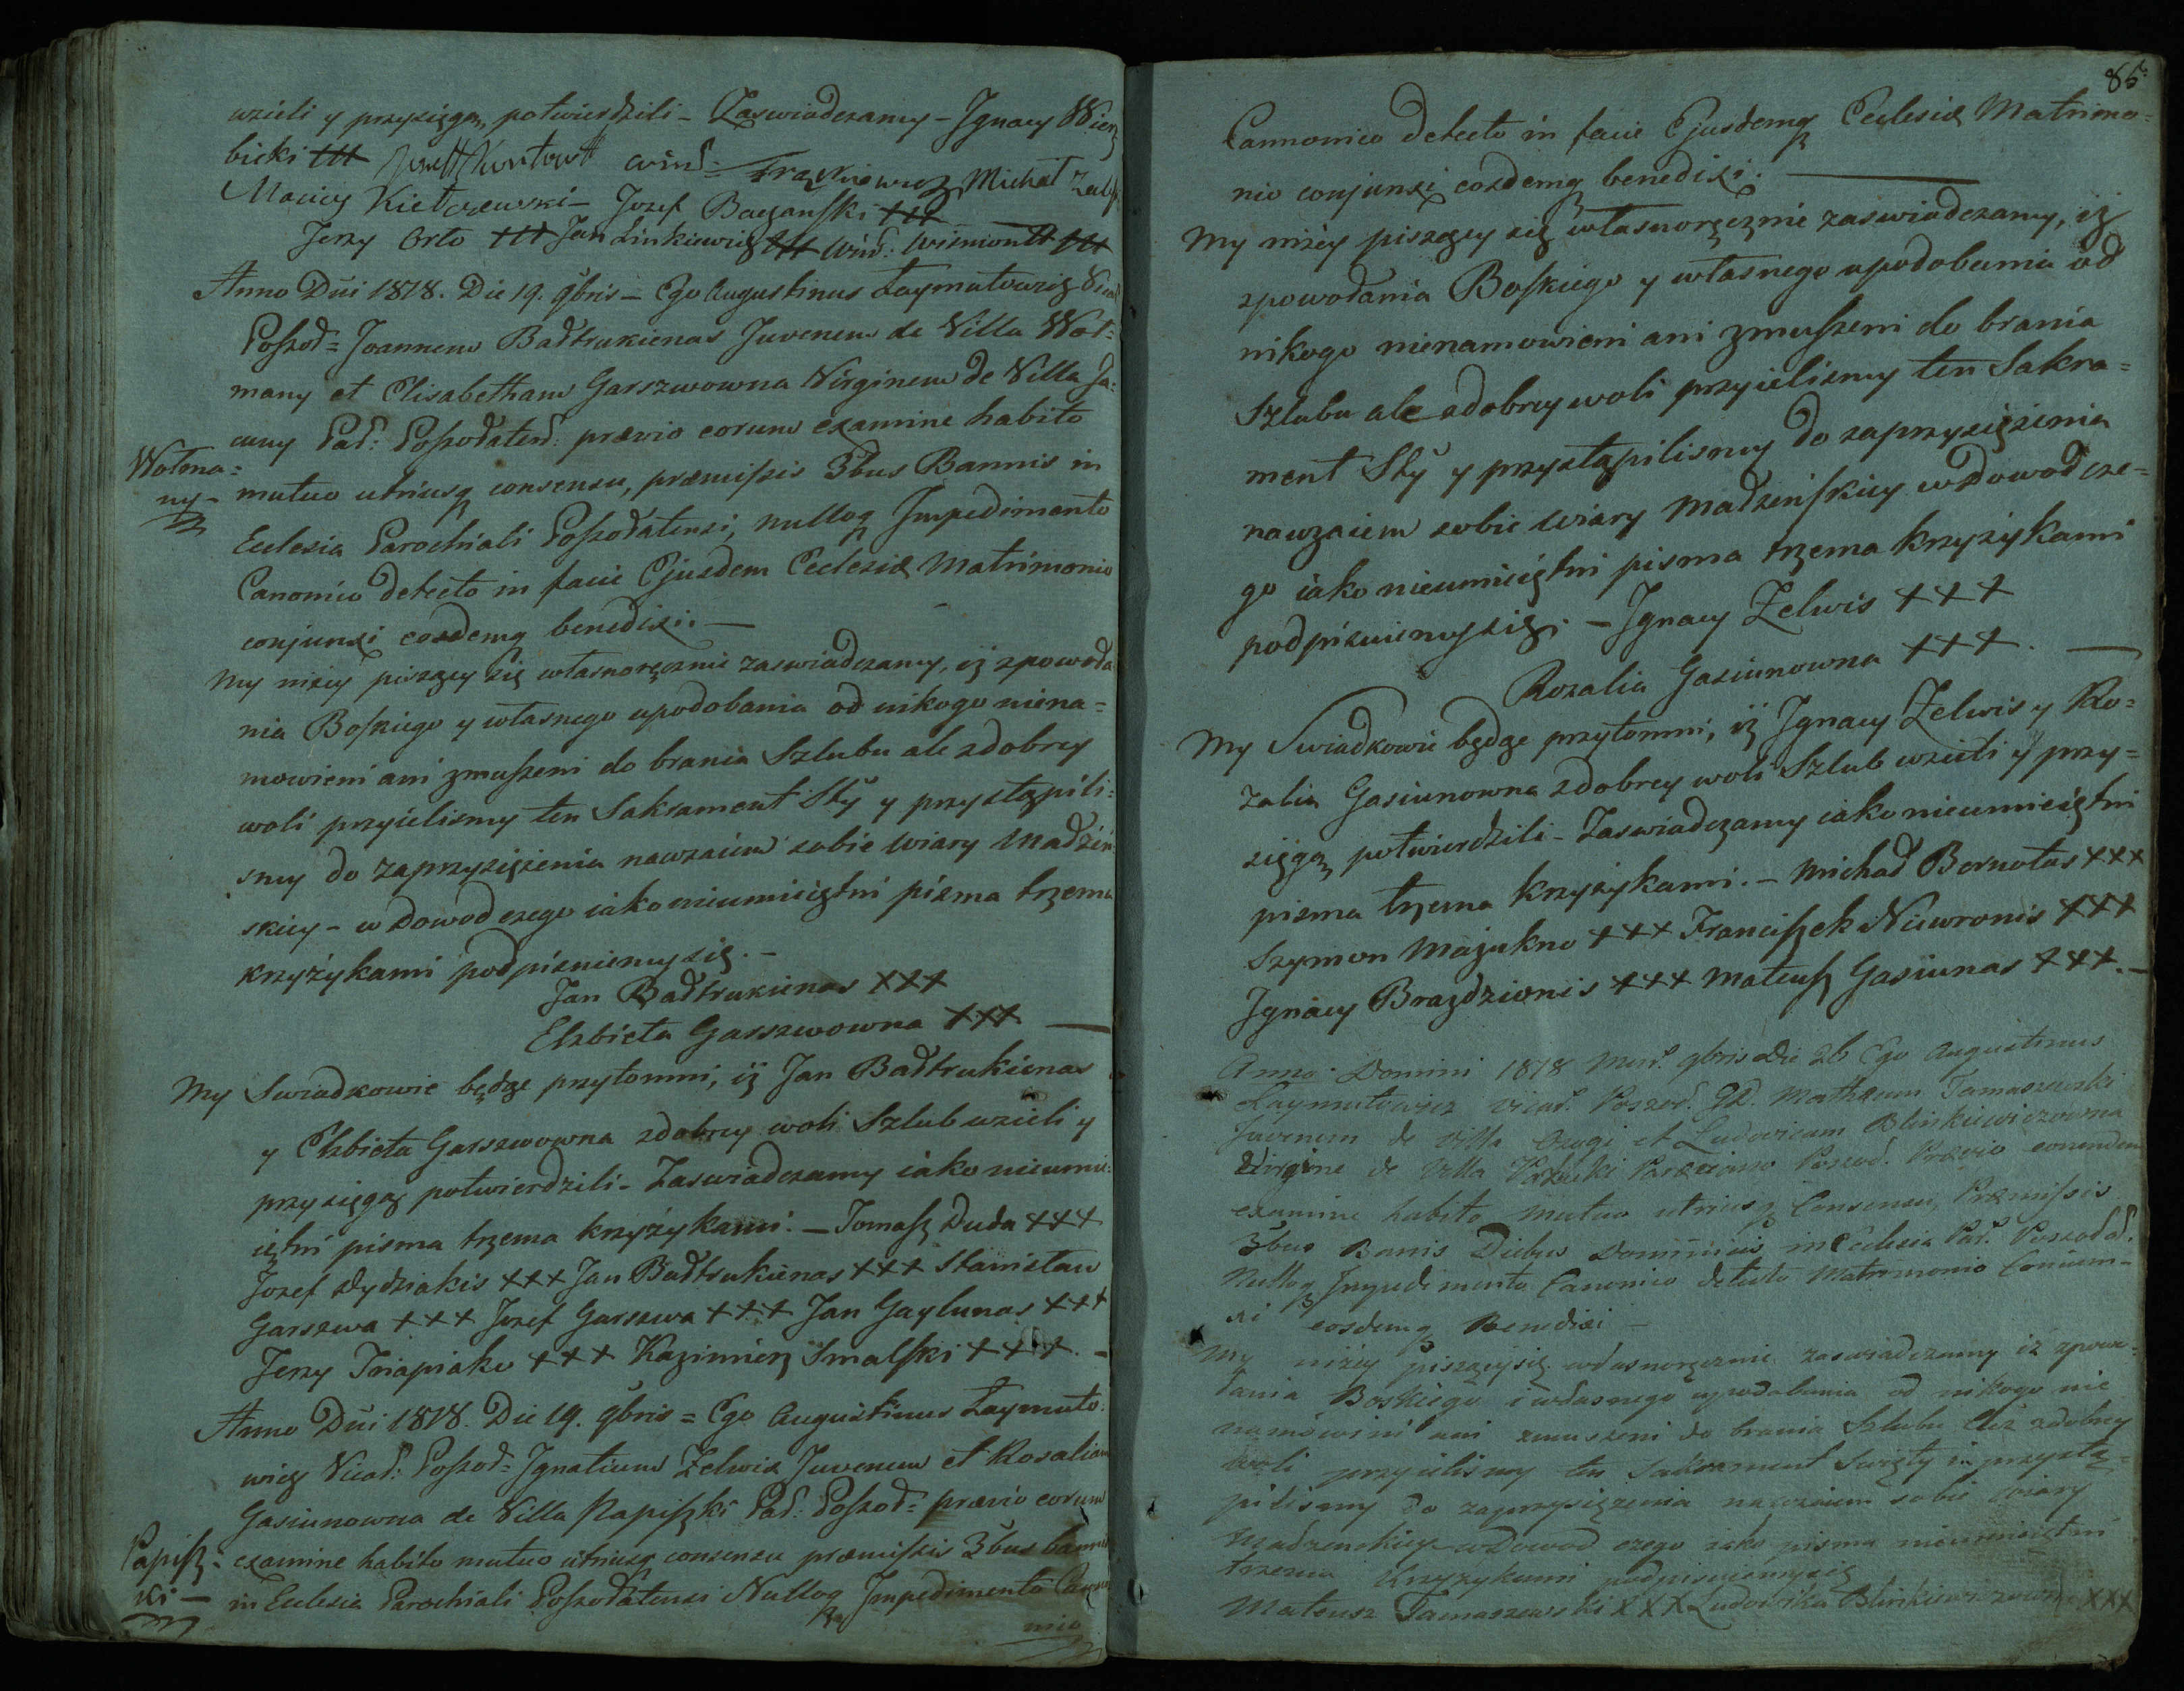 wzieli y przysięgą potwierdzili – Zaswiadczamy – Jgnacy Wierz
bicki +++ Michał
Maciey Kiełczewski – Jozef Baganſki +++
Jerzy Orło +++ Jan Linkiewicz +++ +++
Anno Dñi 1818. Die 19. 9bris – Ego Augustinus Łaymutowicz Vicar
Poſzod= Joannem Bałtrukienas Juvenem de Villa Woł=
many et Elisabetham Garszwowna Virginem de Villa Ja=
cuny Par: Poſzodaten: prævio eorum examine habito
Wołma=
ny –
mutuo utriusq consensu, præmiſsis 3bus Bannis in
Eclesia Parochiali Poſzodatensi, nulloq Jmpedimento
Canonico detecto in facie Ejusdem Eclesiæ Matrimonio
conjunxi eosdemq benedixi. —
My niżey piszący się własnoręcznie zaswiadczamy, iż zpowoła
nia Boſkiego y własnego upodobania od nikogo niena=
mowieni ani zmuſzeni do brania Szlubu ale zdobrey
woli przyielismy ten Sakrament Sty y przystąpili=
smy do zaprzysiężenia nawzaiem sobie wiary Małżeń
skiey – w dowod czego iako nieumieiętni pisma trzema
krzyżykami podpisuiemy się. –
Jan Bałtrukienas +++
Elzbieta Garszwowna +++ —
My Swiadkowie będąc przytomni, iż Jan Bałtrukienas
y Elzbieta Garszwowna zdobrey woli Szlub wzieli y
przysięgą potwierdzili – Zaswiadczamy iako nieumie=
iętni pisma trzema krzyżykami. – Tomaſz Duda +++
Jozef Dydziakis +++ Jan Bałtrukienas +++ Stanisław
Garszwa +++ Jozef Garszwa +++ Jan Gaylunas +++
Jerzy Triapiako +++ Kazimierz Smalſki +++. –
Anno Dñi 1818. Die 19. 9bris = Ego Augustinus Łaymuto=
wicz Vicar: Poſzod= Jgnatium Zelwis Juvenem et Rosaliam
Gasiunowna de Villa Papiſzki Par: Poſzod= prævio eorum
Papiſz=
ki —
examine habito mutuo utriusq consensu præmiſsis 3bus bannis
in Eclesia Parochiali Poſzodatensi Nulloq Jmpedimento Cano
nio
85.
Cannonico detecto in facie Ejusdemq Eclesiæ Matrimo=
nio conjunxi eosdemq benedixi. —
My niżey piszący się własnoręcznie zaswiadczamy, iż
zpowołania Boſkiego y własnego upodobania od
nikogo nienamowieni ani zmuſzeni do brania
Szlubu ale zdobrey woli przyielismy ten Sakra=
ment Sty y przystąpilismy do zaprzysiężenia
nawzaiem sobie wiary Małżeńſkiey w dowod cze=
go iako nieumieiętni pisma trzema krzyżykami
podpisuiemy się. – Jgnacy Zelwis +++
Rozalia Gasiunowna +++. —
My Swiadkowie będąc przytomni, iż Jgnacy Zelwis y Ro=
zalia Gasiunowna zdobrey woli Szlub wzieli y przy=
sięgą potwierdzili – Zaswiadczamy iako nieumieiętni
pisma trzema krzyżykami. – Michał Bernotas +++
Szymon Mażukno +++ Franciſzek Niewronis +++
Jgnacy Brazdzionis +++ Mateuſz Gasiunas +++. –
Anno Domini 1818 Mens. 9bris Die 26 Ego Augustinus
Łaymutowicz Vicar. Poszod. Mathæum Tamaszewski
Juvenem de Villa et Ludovicam Blinkiewiczowna
Virgine de Villa Poszod. Prævio eorumdem
examine habito mutuo utriusq Consensu, Præmiſsis
3bus Banis Diebus Dominicis in Eclesia Par. Poszodod.
Nulloq Jmpedimento Canonico detecto Matrimonio Coniun=
xi eosdemq Benedixi –
My niżey piszący się własnoręcznie zaswiadczamy iż zpowo=
łania Boskiego i własnego upodobania od nikogo nie
namówini ani zmuszeni do brania Szlubu lecz zdobrey
woli przyielismy ten Sakrament Swięty i przystą=
pilismy do zaprzysiężenia nawzaiem sobie wiary
Małżenskiey w dowod czego iako pisma nieumieiętni
trzema krzyżykami podpisuiemy się
Mateusz Tamaszewski XXX Ludowika Blinkiewiczowna XXX